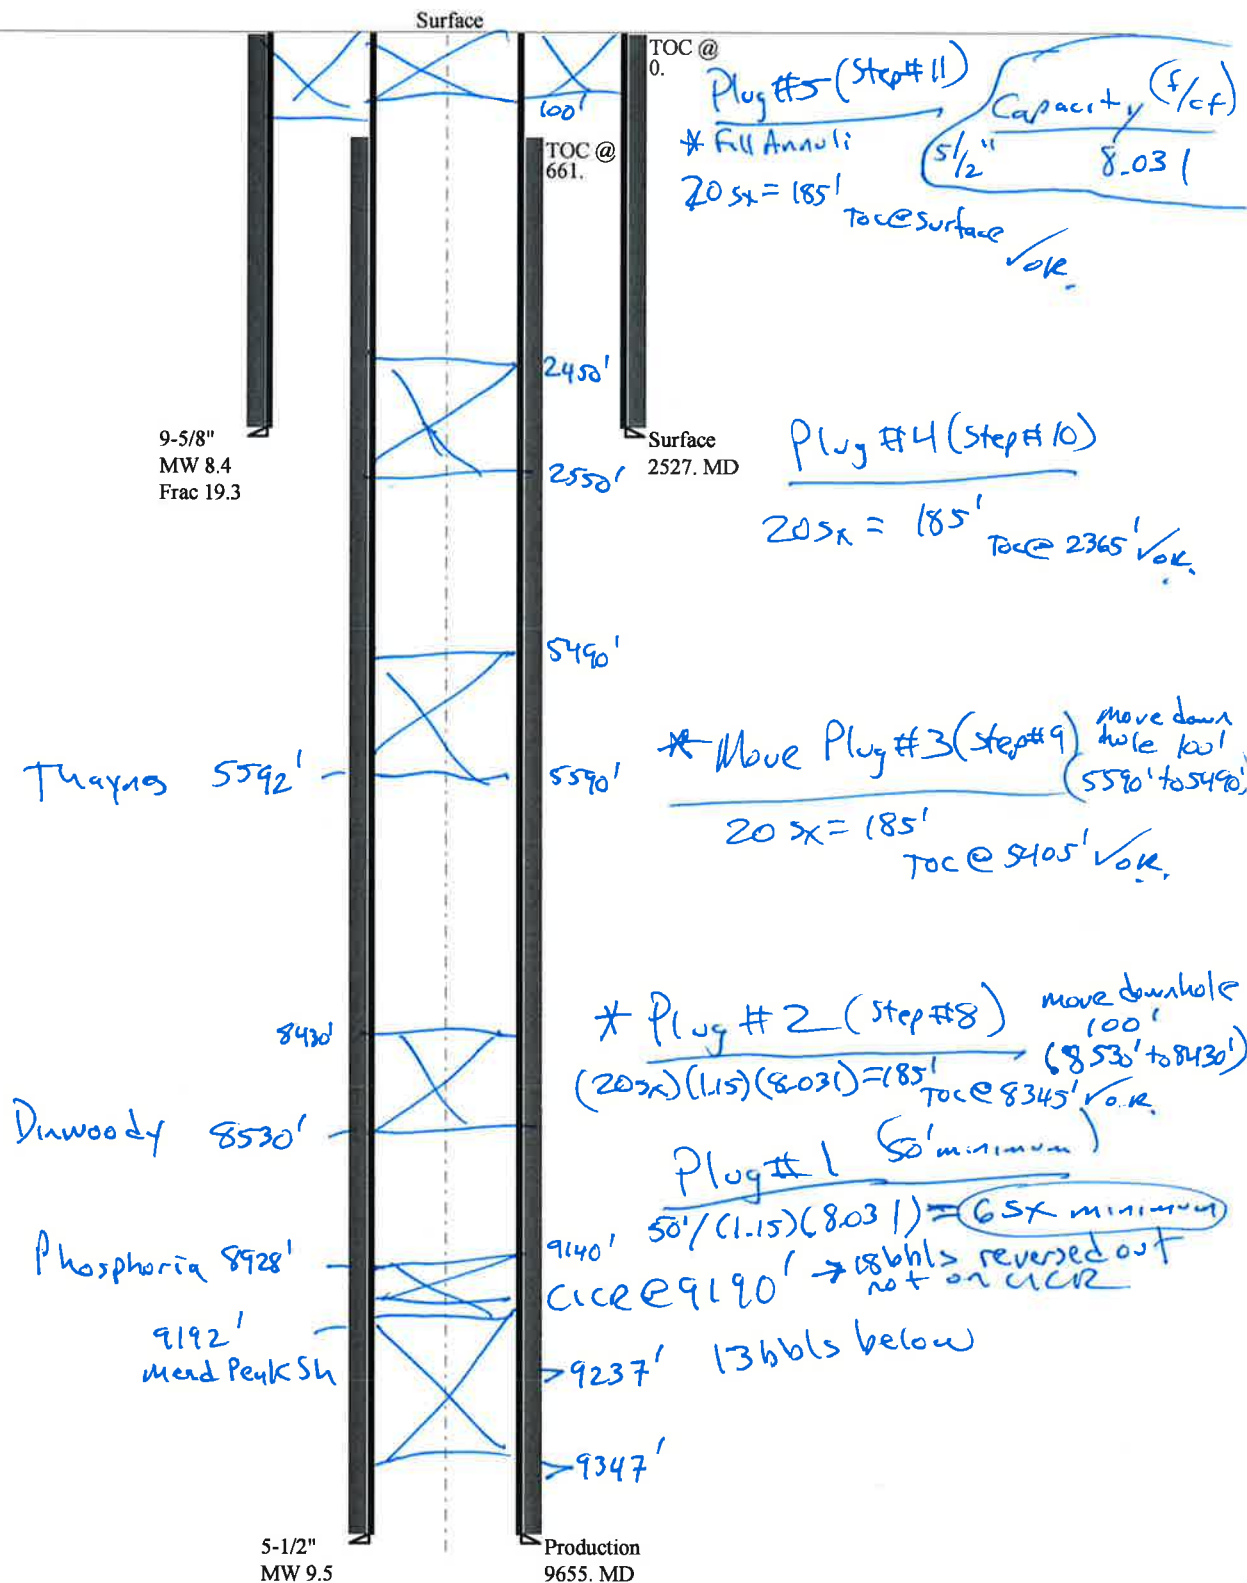 Surface
TOC @
0.
Plug #5 (Step #11)
* Fill Annuli
20 sx = 185'
TOC @ surface ✓ OK.
Capacity (f/cf)
5 1/2" 8.031
100'
TOC @
661.
2450'
2550'
9-5/8"
MW 8.4
Frac 19.3
Surface
2527. MD
Plug #4 (Step #10)
20 sx = 185'
TOC @ 2365' ✓ OK.
5490'
Thaynes 5592'
5590'
* Move Plug #3 (Step #9) move down
hole 100'
(5590' to 5490')
20 sx = 185'
TOC @ 5405' ✓ OK.
8430'
* Plug #2 (Step #8) move downhole
100'
(8530' to 8430')
(20 sx)(1.15)(8.031) = 185'
TOC @ 8345' ✓ O.K.
Dinwoody 8530'
Plug #1 (50' minimum)
50'/(1.15)(8.031) = 6 sx minimum
Phosphoria 8928'
9140'
CICR @ 9190' → 18 bbls reversed out
not on CICR
9192'
Mead Peak Sh
9237' 13 bbls below
9347'
5-1/2"
MW 9.5
Production
9655. MD